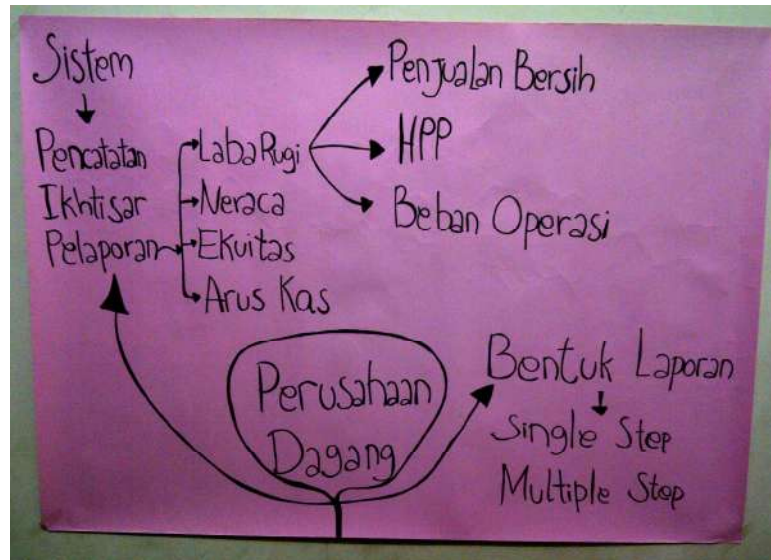 Sistem
Pencatatan
Ikhtisar
Pelaporan
Laba Rugi
Neraca
Ekuitas
Arus Kas
Penjualan Bersih
HPP
Beban Operasi
Perusahaan
Dagang
Bentuk Laporan
Single Step
Multiple Step